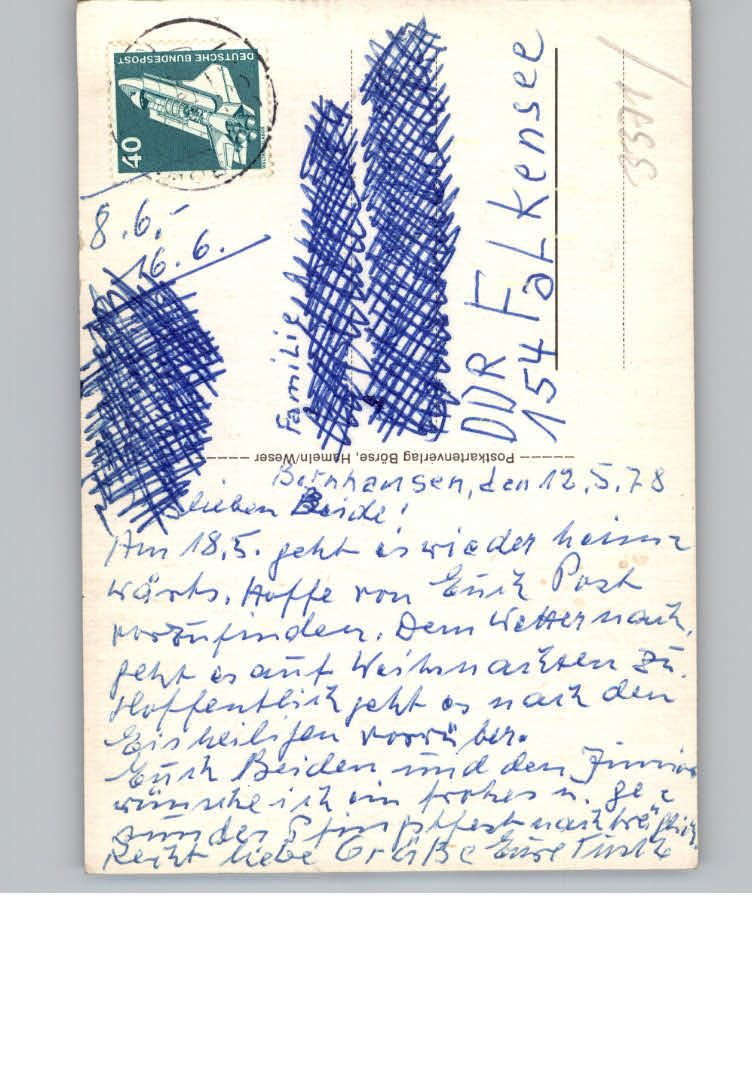 DEUTSCHE BUNDESPOST
40
8.6.-
16.6.
Familie
DDR
154 Falkensee
Postkartenverlag Börse, Hameln/Weser
den 12.5.78
lieben Beide!
Am 18.5. geht es wieder heim=
wärts. Hoffe von Euch Post
vorzufinden. Dem Wetter nach,
geht es auf Weihnachten zu.
Hoffentlich geht es nach den
Eisheiligen vorrüber.
Euch Beiden und den Junior
wünsche ich ein frohes u. ge=
sundes Pfingstfest nachträglich.
Recht liebe Grüße Eure